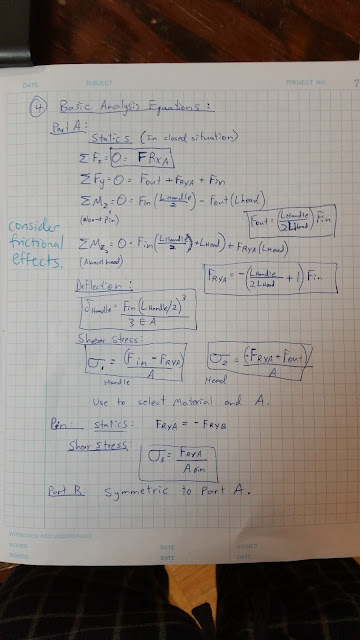 DATE SUBJECT PROJECT NO. 7
④ Basic Analysis Equations:
Part A:
Statics (In closed situation)
ΣFx = 0 = FRXA
ΣFy = 0 = Fout + FRYA + Fin
ΣMz = 0 = Fin (LHandle/2) - Fout (LHead)
(About Pin)
Fout = (LHandle/2LHead) Fin
consider
frictional
effects.
ΣMz2 = 0 = Fin (LHandle/2 + LHead) + FRYA (LHead)
(About head)
FRYA = -(LHandle/2LHead + 1) Fin
Deflection:
δHandle = Fin (LHandle/2)³/3EA
Shear Stress:
σ1 = (Fin - FRYA)/A
Handle
σ2 = (-FRYA - Fout)/A
Head
Use to select Material and A.
Pin: Statics: FRYA = - FRYB
Shear Stress:
σ1 = FRYA/Apin
Part B. Symmetric to Part A.
WITNESSED AND UNDERSTOOD
SIGNED DATE SIGNED
SIGNED DATE DATE